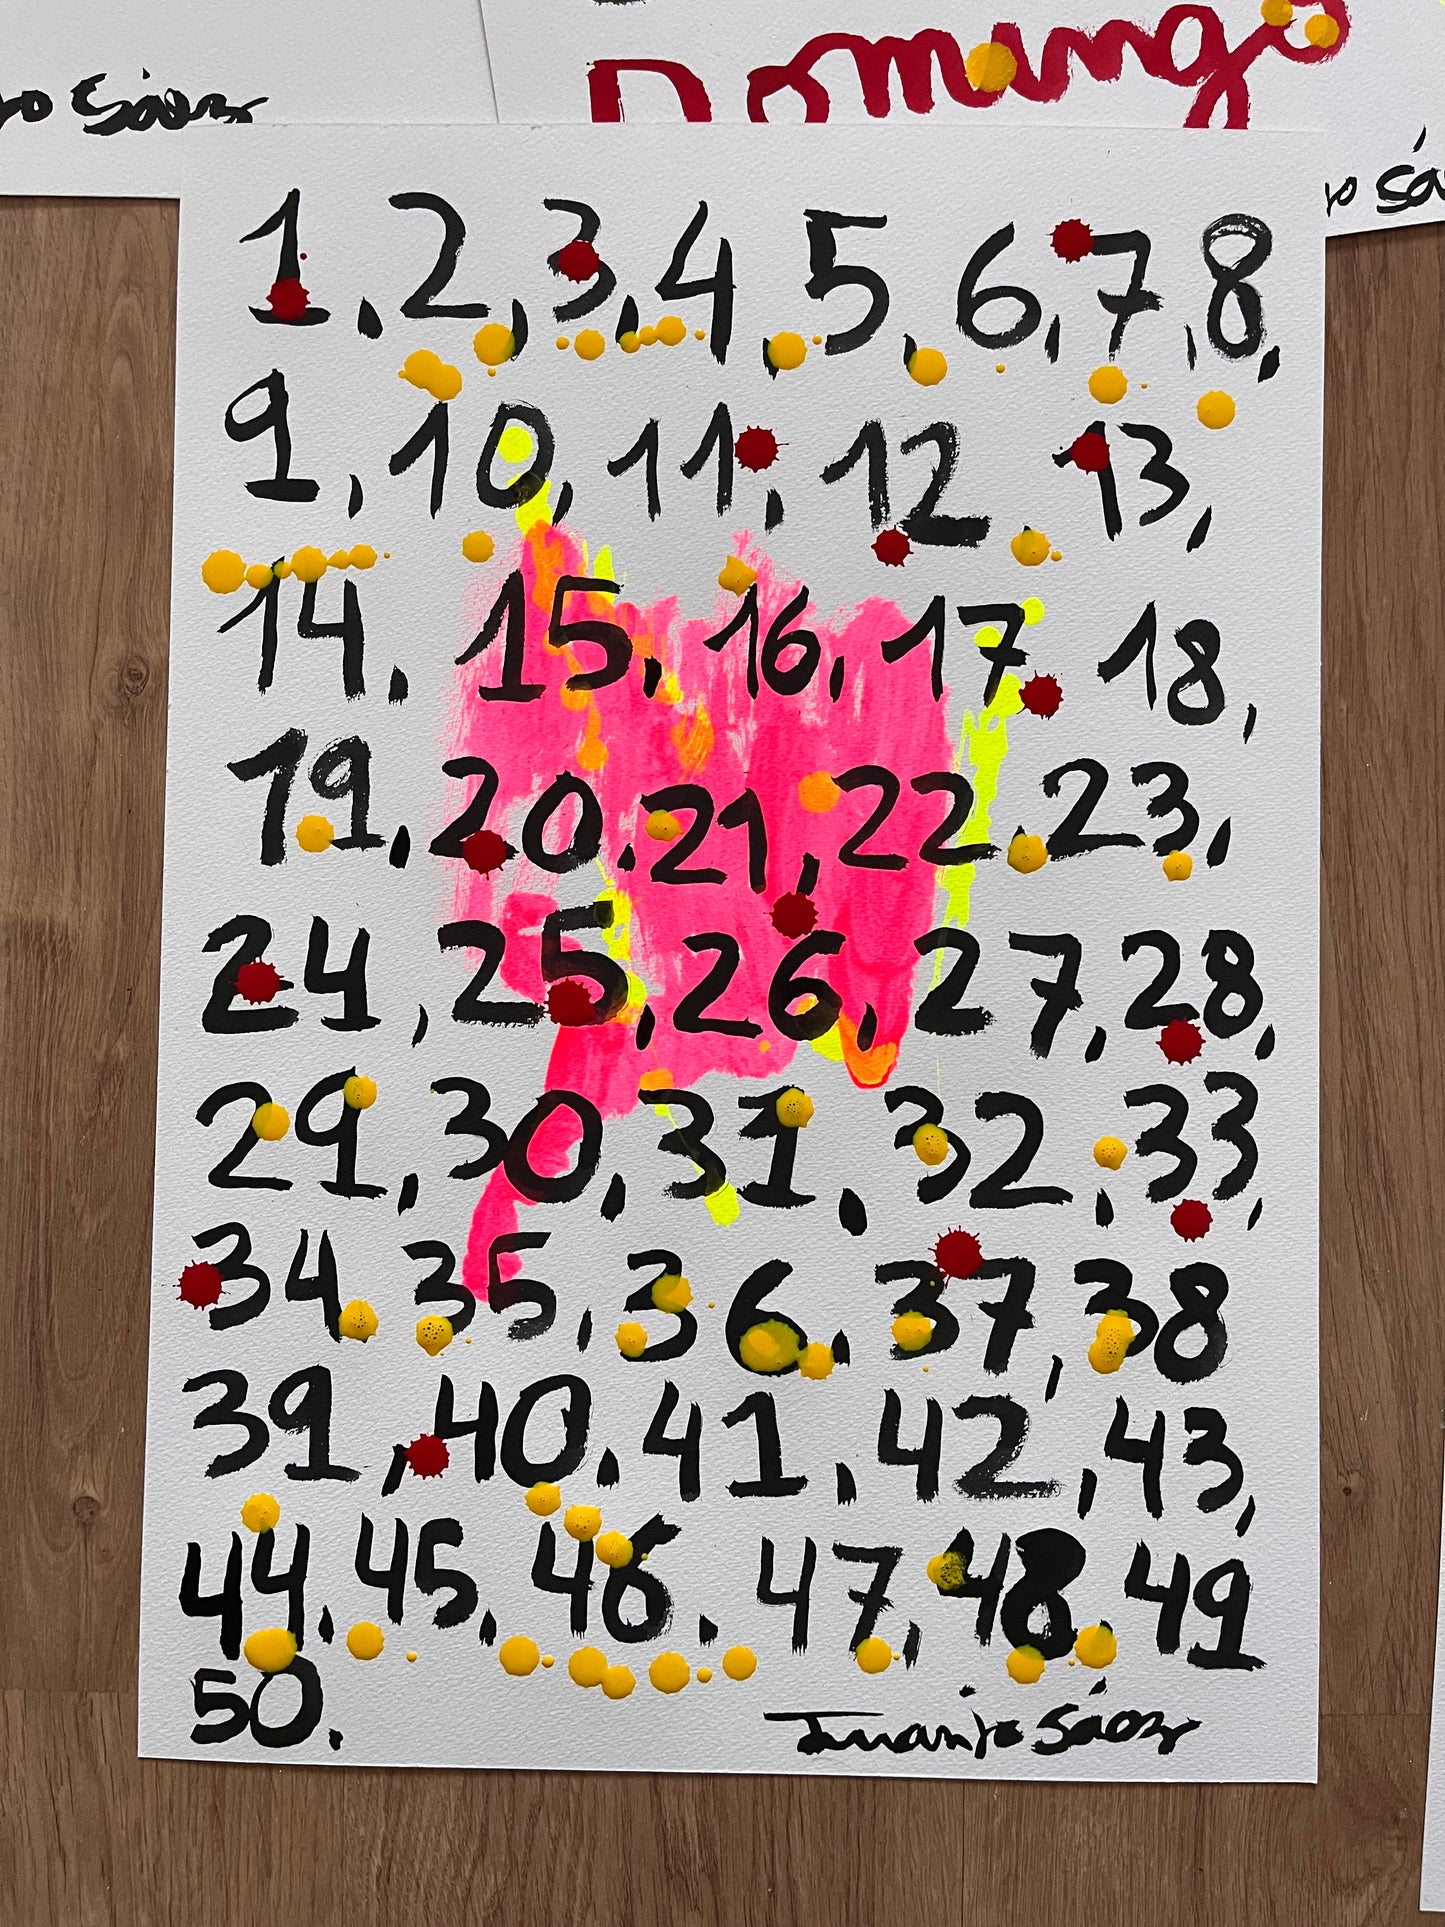 Sáez
Domingo
Sáe
1, 2, 3, 4, 5, 6, 7, 8,
9, 10, 11, 12, 13,
14, 15, 16, 17, 18,
19, 20, 21, 22, 23,
24, 25, 26, 27, 28,
29, 30, 31, 32, 33,
34, 35, 36, 37, 38
39, 40, 41, 42, 43,
44, 45, 46, 47, 48, 49
50.
Juanjo Sáez